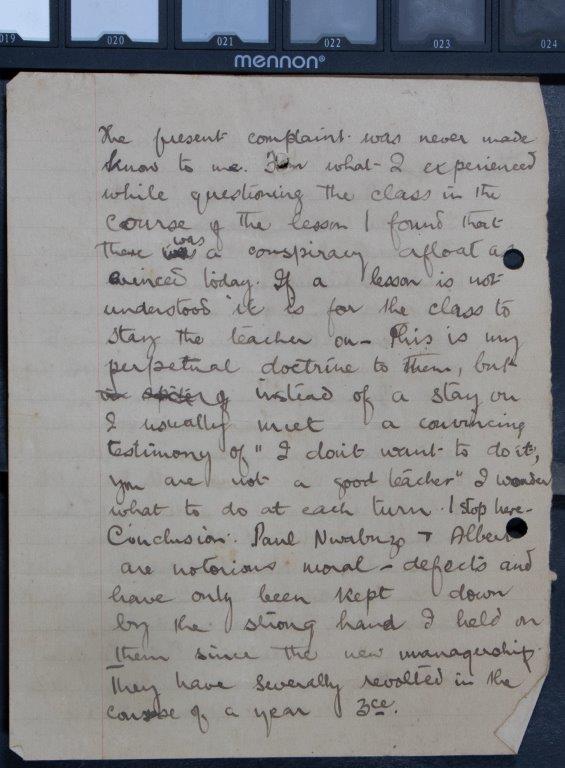 019 020 021 022 023 024
mennon®
the present complaint was never made
know to me. From what I experienced
while questioning the class in the
course of the lesson I found that
there was a conspiracy afloat as
evinced today. If a lesson is not
understood it is for the class to
stay the teacher on - This is my
perpetual doctrine to them, but
instead of a stay on
I usually meet a convincing
testimony of "I don't want to do it,
you are not a good teacher" I wonder
what to do at each turn. I stop here -
Conclusion: Paul & Albert
are notorious moral - defects and
have only been kept down
by the strong hand I held on
them since the new managership.
They have severally revolted in the
course of a year 3ce.